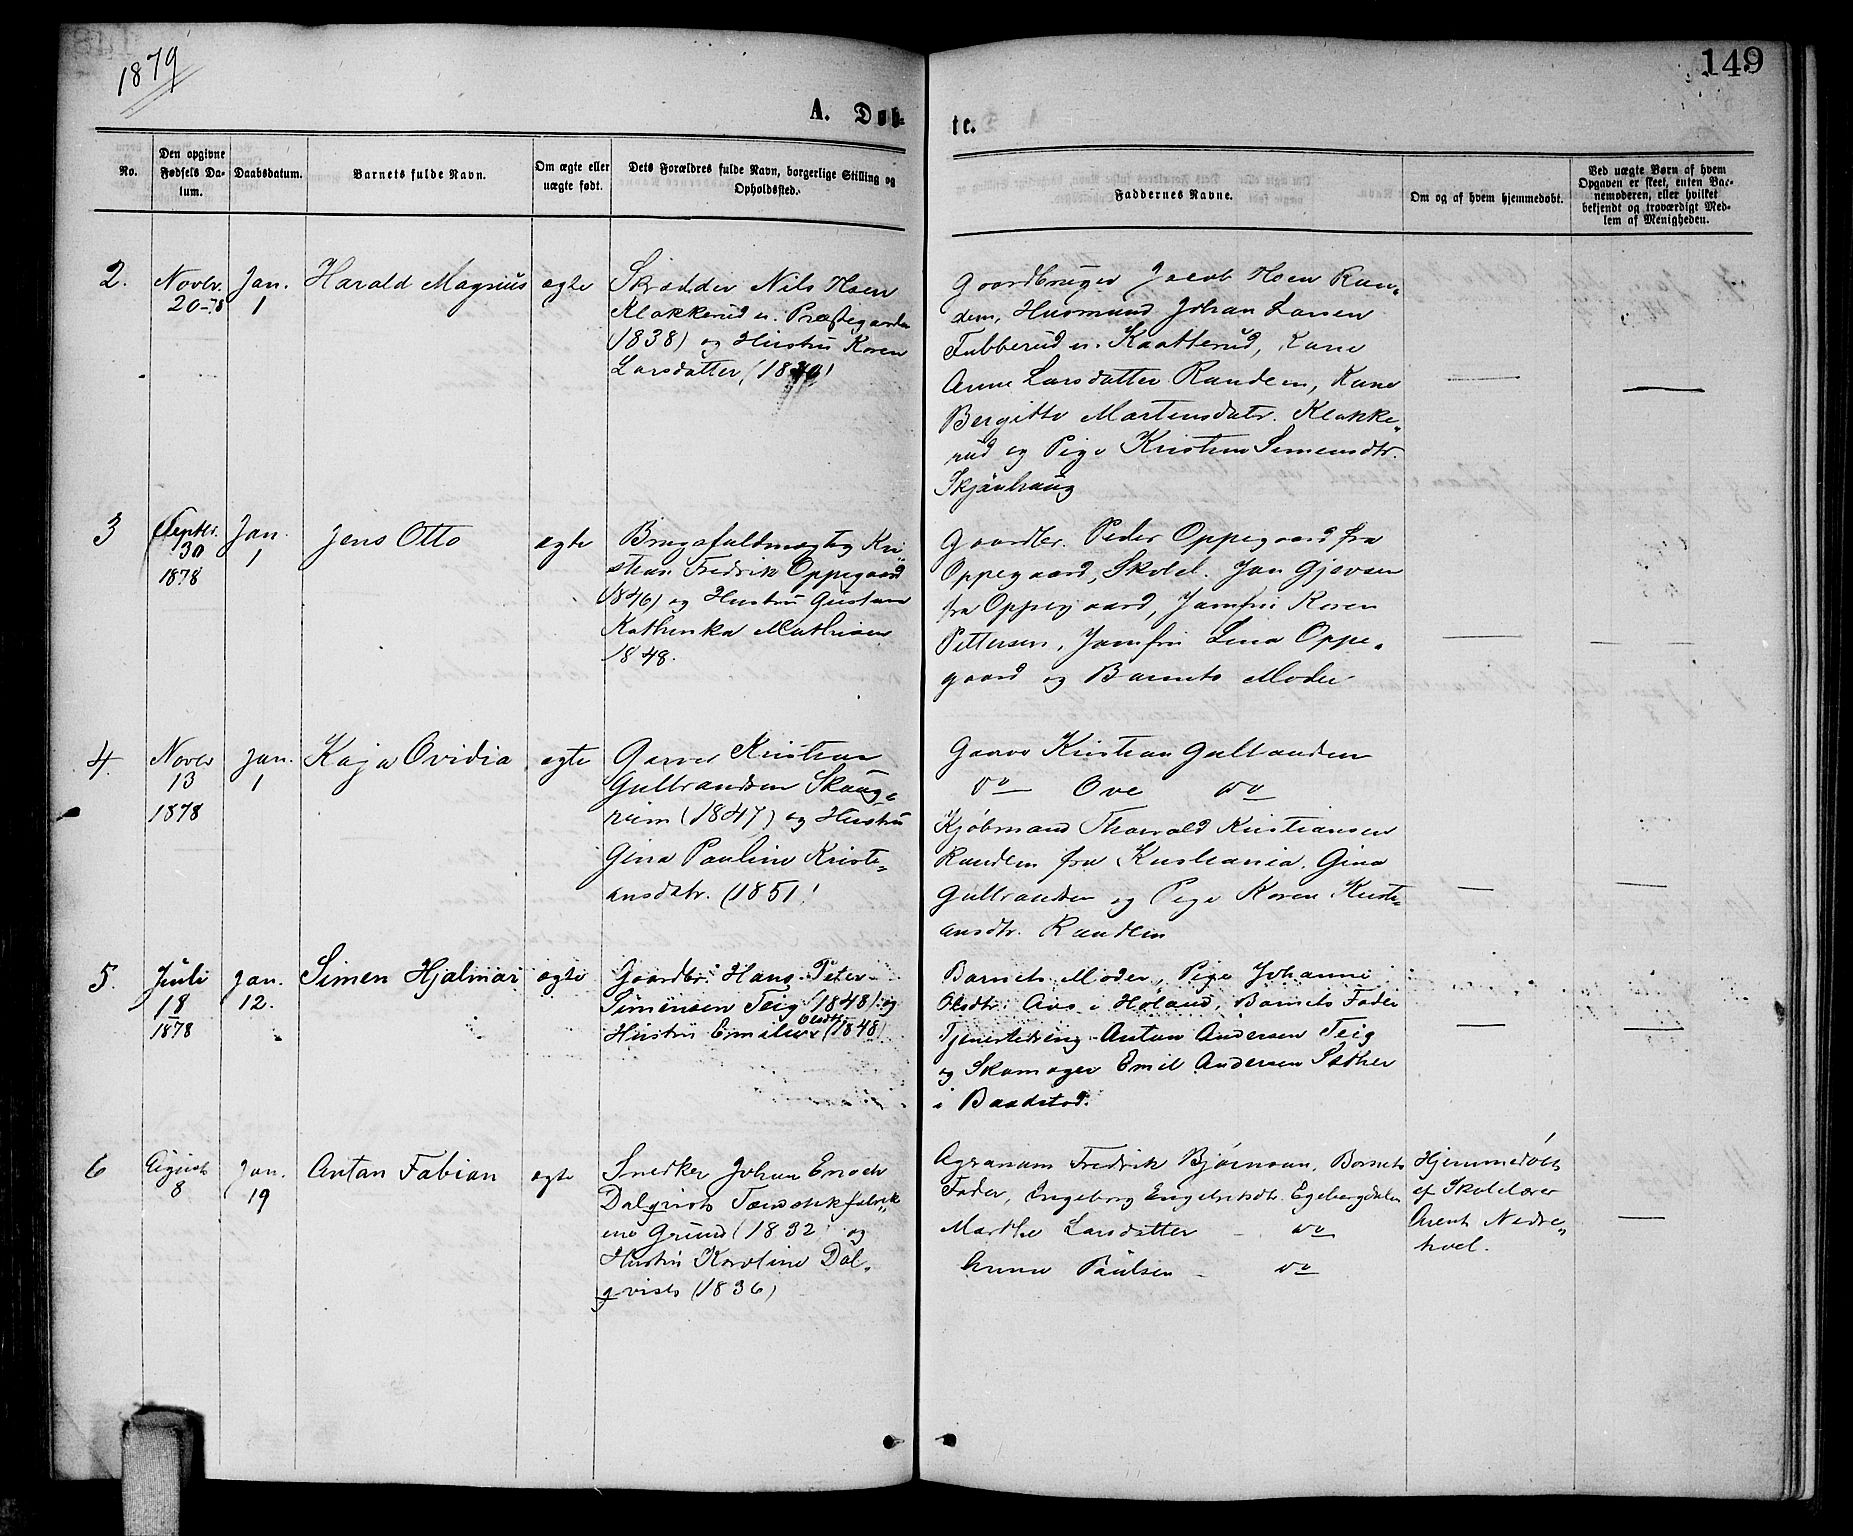 1879
149
A. Døb-
te.
No.
Den opgivne
Fødsels Da-
tum.
Daabsdatum.
Barnets fulde Navn.
Om ægte eller
uægte født.
Dets Forældres fulde Navn, borgerlige Stilling og
Opholdssted.
Faddernes Navne.
Om og af hvem hjemmedøbt.
Ved uægte Børn af hvem
Opgaven er skeet, enten Bar-
nemoderen, eller hvilket
bekjendt og troværdigt Med-
lem af Menigheden.
2.
Novbr.
20-78
Jan.
1
Harald Magnus
ægte
Skrædder Nils Hoen
Klokkerud u. Præstegaarden
(1838) og Hustru Karen
Larsdatter,
Gaardbruger Jacob Hoen Ran-
dem, Husmand Johan Larsen
Tubberud u. Kaatterud, Kone
Anne Larsdatter Randem, Kone
Bergitte Martensdatr. Klokke-
rud og Pige Kristine Simensdtr.
Skjønhaug
3
Septbr.
30
1878
Jan.
1
Jens Otto
ægte
Brugsfuldmægtig Kri-
stian Fredrik Oppegaard
(1846) og Hustru Gustava
Kathinka Mathisen
1848.
Gaardbr. Peder Oppegaard fra
Oppegaard, Skolel. Jan Gjevsen
fra Oppegaard, Jomfru Karen
Pettersen, Jomfru Lina Oppe-
gaard og Barnets Moder
4.
Novbr
13
1878
Jan.
1
Kaja Ovidia
ægte
Garver Kristian
Gulbrandsen Skaug-
rum (1847) og Hustru
Gina Pauline Kristi-
ansdatr. (1851)
Garver Kristian Gulbrandsen
do Ove do
Kjøbmand Thorvald Kristiansen
Randem fra Kristiania, Gina
Gulbrandsen og Pige Karen Kristi-
ansdtr. Randem
5.
Juli
18
1878
Jan.
12.
Simen Hjalmar
ægte
Gaardbr. Hans Peter
Simensen Teig (1848) og
Hustru Emilie Olsdtr (1848)
Barnets Moder, Pige Johanne
Olsdtr. Aas i Høland, Barnets Fader
Tjenestedreng Anton Andersen Teig
og Skomager Emil Andersen Sæther
i Baastad.
6
August
8
Jan.
19
Anton Fabian
ægte
Snedker Johan Enoch
Dalqvists Tændstikfabrik-
ene Grund (1832) og
Hustru Karoline Dal-
qvists (1836)
Agronom Fredrik Bjørnson, Barnets
Fader, Ingeborg Engebretsdtr. Egebergdalen
Marthe Larsdatter - do
Anne Paulsen - do
Hjemmedøbt
af Skolelærer
Arent Nedre-
hvel.